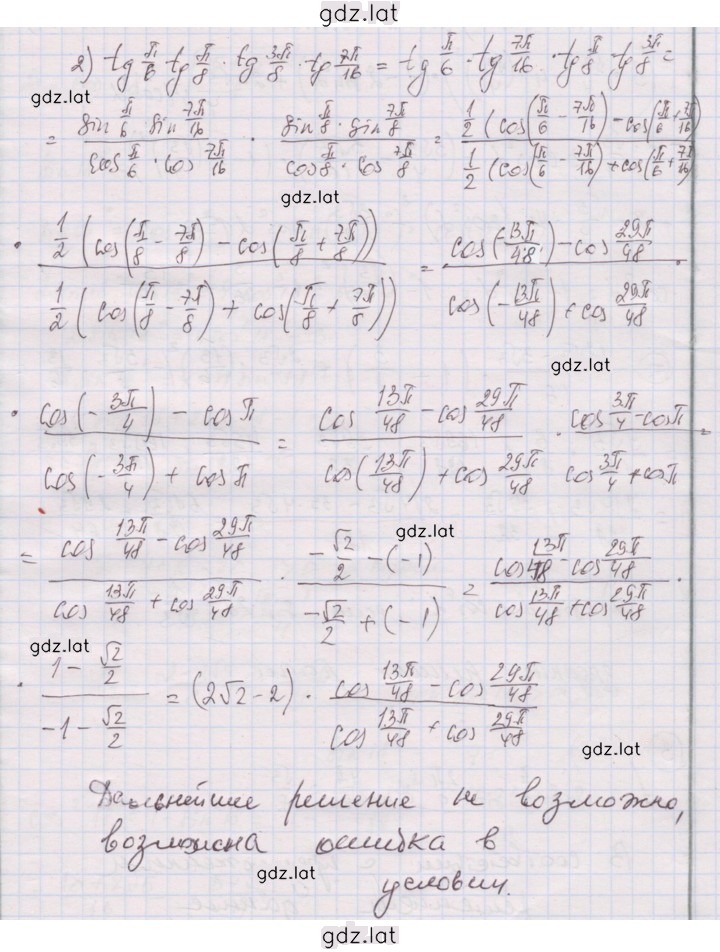 gdz.lat
2) tg π/6 tg π/8 · tg 3π/8 · tg 7π/16 = tg π/6 · tg 7π/16 · tg π/8 tg 3π/8 =
gdz.lat
= (sin π/6 · sin 7π/16)/(cos π/6 · cos 7π/16) · (sin π/8 · sin 7π/8)/(cos π/8 · cos 7π/8) = (1/2 (cos(π/6 − 7π/16) − cos(π/6 + 7π/16)))/(1/2 (cos(π/6 − 7π/16) + cos(π/6 + 7π/16)))
gdz.lat
· (1/2 (cos(π/8 − 7π/8) − cos(π/8 + 7π/8)))/(1/2 (cos(π/8 − 7π/8) + cos(π/8 + 7π/8))) = (cos(−13π/48) − cos 29π/48)/(cos(−13π/48) + cos 29π/48) ·
gdz.lat
· (cos(−3π/4) − cos π)/(cos(−3π/4) + cos π) = (cos 13π/48 − cos 29π/48)/(cos(13π/48) + cos 29π/48) · (cos 3π/4 − cos π)/(cos 3π/4 + cos π) =
gdz.lat
= (cos 13π/48 − cos 29π/48)/(cos 13π/48 + cos 29π/48) · (−√2/2 − (−1))/(−√2/2 + (−1)) = (cos 13π/48 − cos 29π/48)/(cos 13π/48 + cos 29π/48) ·
gdz.lat
· (1 − √2/2)/(−1 − √2/2) = (2√2 − 2) · (cos 13π/48 − cos 29π/48)/(cos 13π/48 + cos 29π/48)
gdz.lat
Дальнейшие решение не возможно,
возможна ошибка в
gdz.lat
условии.
gdz.lat